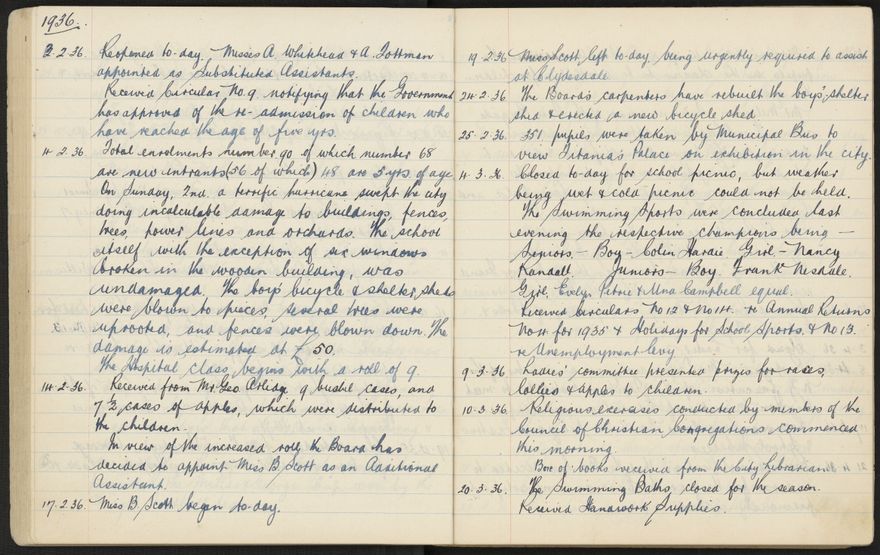 1936.
2.2.36. Reopened to-day. Misses A. Whitehead & A. Tottman
appointed as Substituted Assistants.
Received Circular No. 9, notifying that the Government
has approved of the re-admission of children who
have reached the age of five yrs.
4.2.36. Total enrolments number 90 of which number 68
are new intrants (56 of which) 48 are 5 yrs. of age
On Sunday, 2nd. a terrific hurricane swept the city
doing incalculable damage to buildings, fences,
trees, power lines and orchards. The school
itself with the exception of six windows
broken in the wooden building, was
undamaged. The boys' bicycle & shelter sheds
were blown to pieces, several trees were
uprooted, and fences were blown down. The
damage is estimated at £50.
The Hospital class begins with a roll of 9.
14.2.36. Received from Mr. Geo. Arlidge 9 bushel cases, and
7 ½ cases of apples, which were distributed to
the children.
In view of the increased roll, the Board has
decided to appoint Miss B. Scott as an Additional
Assistant.
17.2.36. Miss B. Scott began to-day.
19.2.36 Miss Scott left to-day, being urgently required to assist
at Clydesdale.
24.2.36 The Board's carpenters have rebuilt the boys' shelter
shed & erected a new bicycle shed.
25.2.36. 351 pupils were taken by Municipal Bus to
view Titania's Palace on exhibition in the city.
4.3.36. Closed to-day for school picnic, but weather
being wet & cold picnic could not be held.
The Swimming Sports were concluded last
evening the respective champions being —
Seniors, — Boy — Colin Hardie Girl, — Nancy
Randall, Juniors — Boy. Frank Nesdale.
Girl, Evelyn Petrie & Una Campbell equal.
Received Circulars No 12 & No 14. re Annual Returns
No 4. for 1935 & Holidays for School Sports, & No 13.
re Unemployment levy
9.3.36 Ladies' committee presented prizes for races,
lollies & apples to children.
10.3.36. Religious exercises conducted by members of the
Council of Christian Congregations commenced
this morning.
Box of books received from the City Librarian.
20.3.36. The Swimming Baths closed for the season.
Received Handwork Supplies.